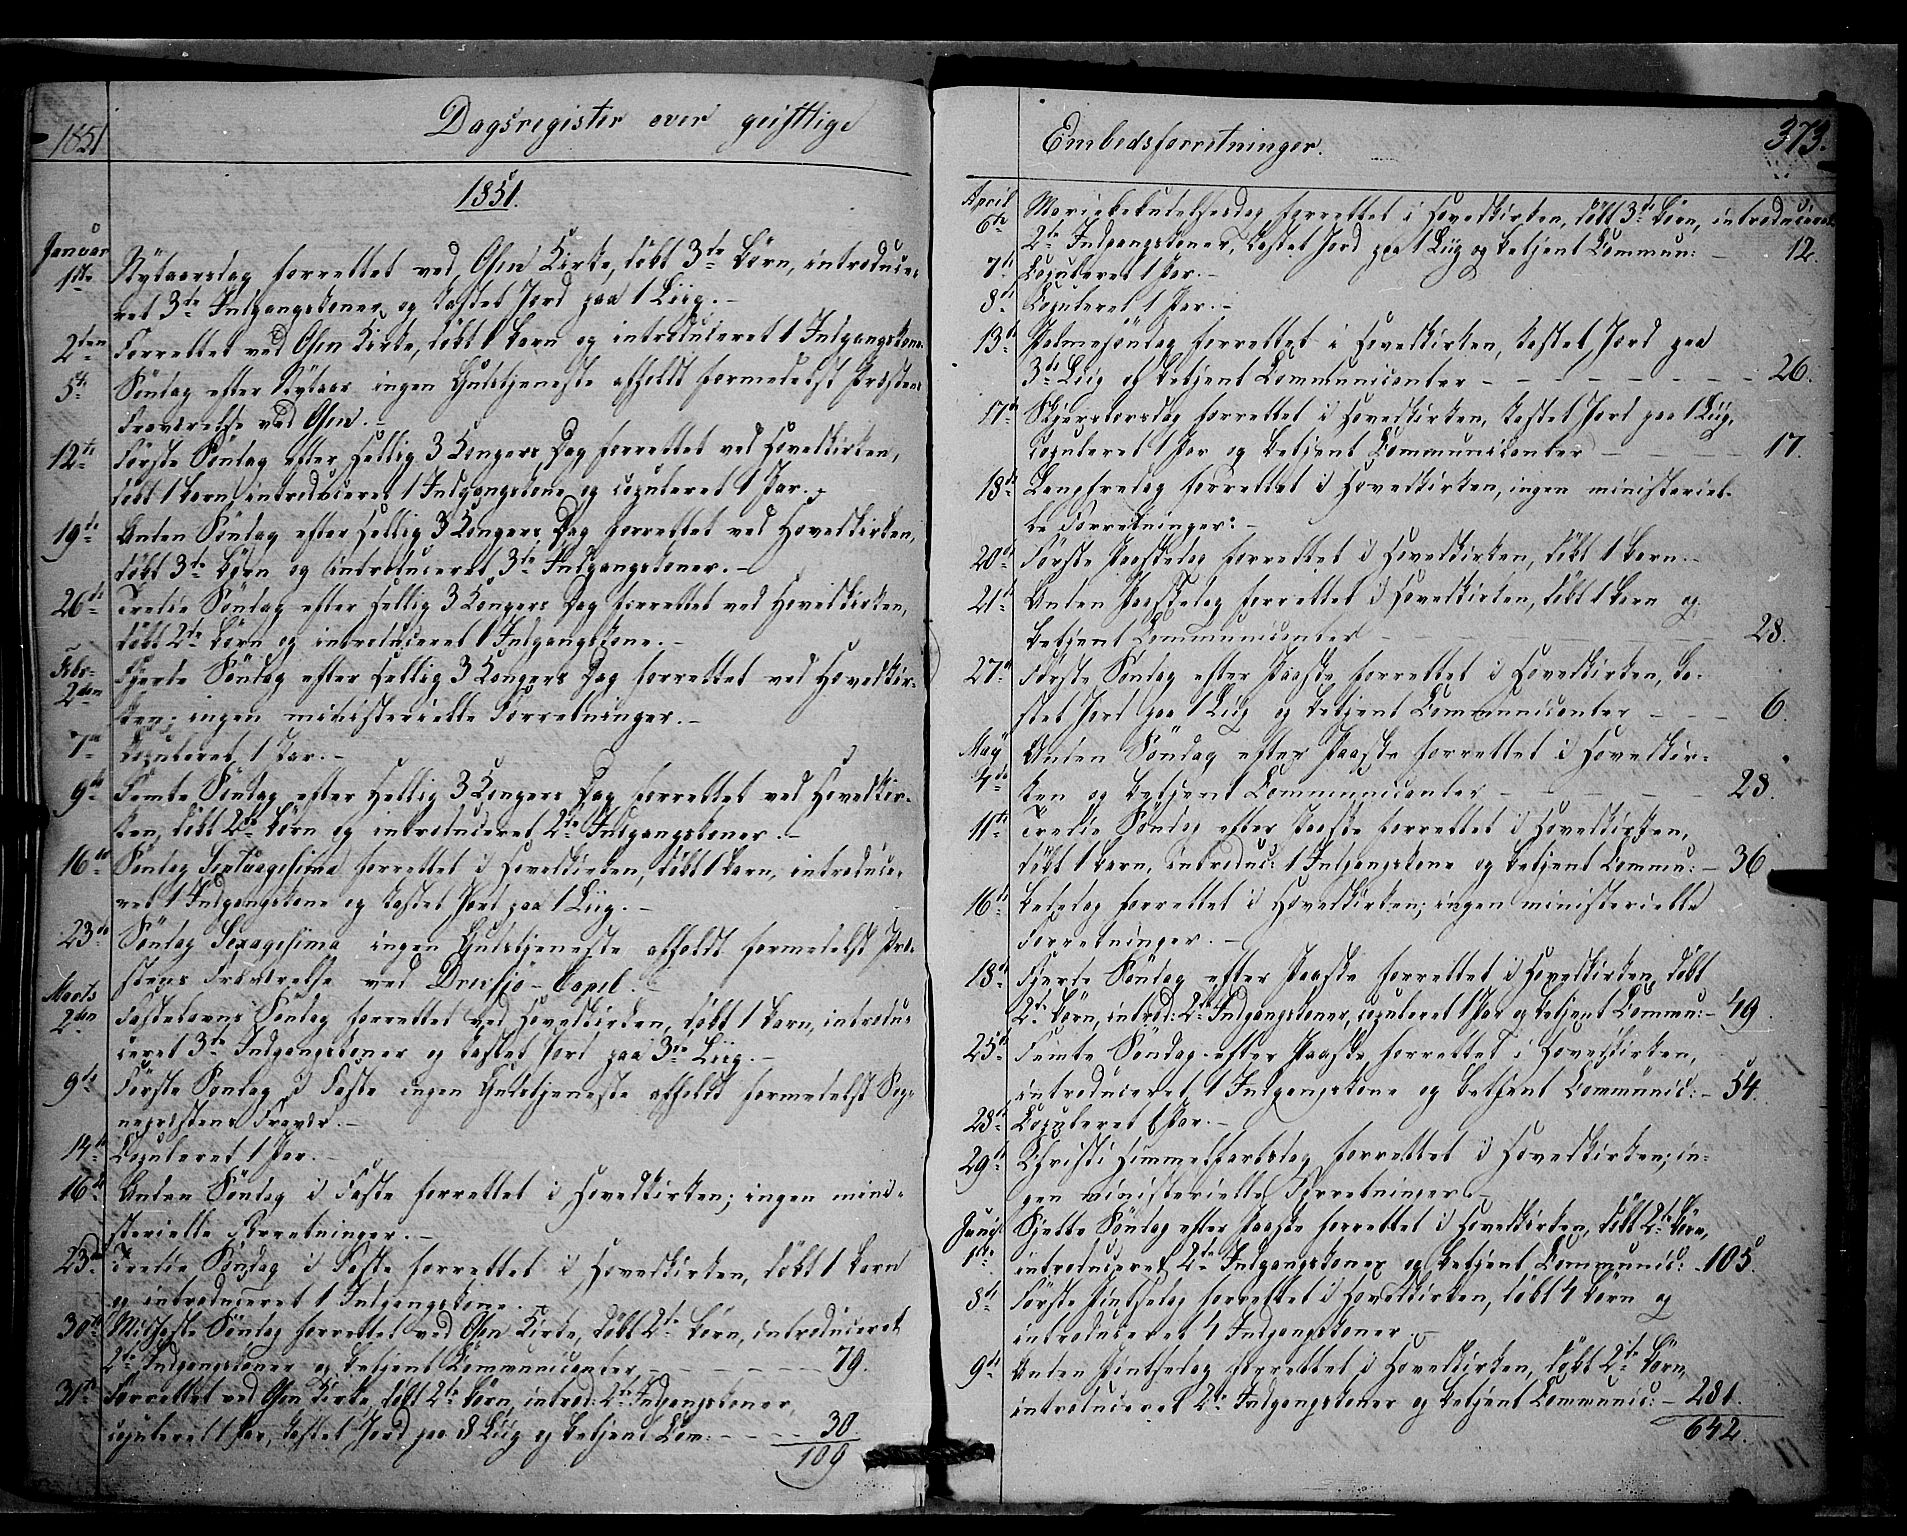 1851
Dagsregister over geistlige
1851.
Januar
1ste Nytaarsdag forrettet ved Osen Kirke, døbt 3de Børn, introduce-
ret 3de Indgangskoner og kastet Jord paa 1 Liig.-
2den Forrettet ved Osen Kirke, døbt 1 Barn og introduceret 1 Indgangskone.
5te Søndag efter Nytaar ingen Gudstjeneste afholdt formedelst Præstens
Fraværelse ved Osen.-
12te Første Søndag efter Hellig 3 Kongers Dag forrettet ved Hovedkirken,
døbt 1 Barn, introduceret 1 Indgangskone og copuleret 1 Par.-
19de Anden Søndag efter Hellig 3 Kongers Dag forrettet ved Hovedkirken,
døbt 3de Børn og introduceret 3de Indgangskoner.-
26de Tredie Søndag efter Hellig 3 Kongers Dag forrettet ved Hovedkirken,
døbt 2de Børn og introduceret 1 Indgangskone.-
Febr.
2den Fjerde Søndag efter Hellig 3 Kongers Dag forrettet ved Hovedkir-
ken; ingen ministerielle Forretninger.-
7de Copuleret 1 Par.-
9de Femte Søndag efter Hellig 3 Kongers Dag forrettet ved Hovedkir-
ken, døbt 2de Børn og introduceret 2de Indgangskoner.-
16de Søndag Septuagesima forrettet i Hovedkirken, døbt 1 Barn, introduce-
ret 1 Indgangskone og kastet Jord paa 1 Liig.-
23de Søndag Sexagesima ingen Gudstjeneste afholdt formedelst Præ-
stens Fraværelse ved Drevsjø-Capel.-
Marts
2den Fastelavns Søndag forrettet ved Hovedkirken, døbt 1 Barn, introdu-
ceret 3de Indgangskoner og kastet Jord paa 3de Liig.-
9de Første Søndag i Faste ingen Gudstjeneste afholdt formedelst Sog-
nepræstens Fravær.-
14de Copuleret 1 Par.-
16de Anden Søndag i Faste forrettet i Hovedkirken; ingen mini-
sterielle Forretninger.-
23de Tredie Søndag i Faste forrettet i Hovedkirken, døbt 1 Barn
og introduceret 1 Indgangskone.
30te Midfaste Søndag forrettet ved Osen Kirke, døbt 2de Børn, introduceret
2de Indgangskoner og betjent Communicanter - - - - - - 79.
31te Forrettet ved Osen Kirke, døbt 2de Børn, introd: 2de Indgangskoner,
copuleret 1 Par, kastet Jord paa 8 Liig og betjent Com: - - - - 30.
109
Embedsforretninger.
373.
April
6te Mariæbebudelsesdag forrettet i Hovedkirken, døbt 3de Børn, introduceret
2de Indgangskoner, kastet Jord paa 1 Liig og betjent Commun: - 12.
7de Copuleret 1 Par.-
8de Copuleret 1 Par.-
13de Palmesøndag forrettet i Hovedkirken, kastet Jord paa
3de Liig og betjent Communicanter - - - - - - - - 26.
17de Skjærtorsdag forrettet i Hovedkirken, kastet Jord paa 1 Liig,
copuleret 1 Par og betjent Communicanter - - - - 17.
18de Langfredag forrettet i Hovedkirken, ingen ministeriel-
le Forretninger.-
20de Første Paaskedag forrettet i Hovedkirken, døbt 1 Barn.-
21de Anden Paaskedag forrettet i Hovedkirken, døbt 1 Barn og
betjent Communicanter - - - - - - - 28.
27de Første Søndag efter Paaske forrettet i Hovedkirken, ka-
stet Jord paa 1 Liig og betjent Communicanter - - - 6.
May
4de Anden Søndag efter Paaske forrettet i Hovedkir-
ken og betjent Communicanter - - - - - - 28.
11te Tredie Søndag efter Paaske forrettet i Hovedkirken,
døbt 1 Barn, introduc: 1 Indgangskone og betjent Commu: - 36
16de Bededag forrettet i Hovedkirken; ingen ministerielle
Forretninger.-
18de Fjerde Søndag efter Paaske forrettet i Hovedkirken, døbt
2de Børn, introd: 2de Indgangskoner, copuleret 1 Par og betjent Commu: - 49.
25de Femte Søndag efter Paaske forrettet i Hovedkirken,
introduceret 1 Indgangskone og betjent Communic: - 54.
28de Copuleret 1 Par.-
29de Christi Himmelfartsdag forrettet i Hovedkirken; in-
gen ministerielle Forretninger.-
Juni
1ste Sjette Søndag efter Paaske forrettet i Hovedkirken, døbt 2de Børn,
introduceret 2de Indgangskoner og betjent Communic: - 105.
8de Første Pintsedag forrettet i Hovedkirken, døbt 4 Børn og
introduceret 4 Indgangskoner.-
9de Anden Pintsedag forrettet i Hovedkirken, døbt 2de Børn,
introduceret 2de Indgangskoner og betjent Communic: - 281.
642.